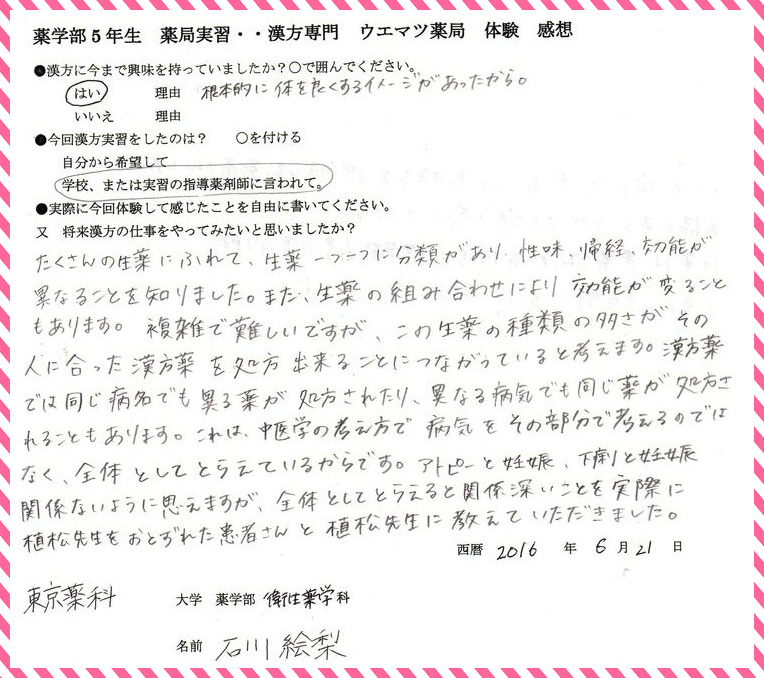 薬学部5年生 薬局実習・・漢方専門 ウエマツ薬局 体験 感想
●漢方に今まで興味を持っていましたか？○で囲んでください。
はい 理由 根本的に体を良くするイメージがあったから。
いいえ 理由
●今回漢方実習をしたのは？ ○を付ける
自分から希望して
学校、または実習の指導薬剤師に言われて。
●実際に今回体験して感じたことを自由に書いてください。
又 将来漢方の仕事をやってみたいと思いましたか？
たくさんの生薬にふれて、生薬一つ一つに分類があり、性味、帰経、効能が
異なることを知りました。また、生薬の組み合わせにより効能が変ること
もあります。複雑で難しいですが、この生薬の種類の多さがその
人に合った漢方薬を処方出来ることにつながっていると考えます。漢方薬
では同じ病名でも異る薬が処方されたり、異なる病気でも同じ薬が処方さ
れることもあります。これは、中医学の考え方で病気をその部分で考えるのでは
なく、全体としてとらえているからです。アトピーと妊娠、下痢と妊娠
関係ないように思えますが、全体としてとらえると関係深いことを実際に
植松先生をおとずれた患者さんと植松先生に教えていただきました。
西暦 2016 年 6月21日
東京薬科 大学 薬学部 衛生薬学科
名前 石川絵梨